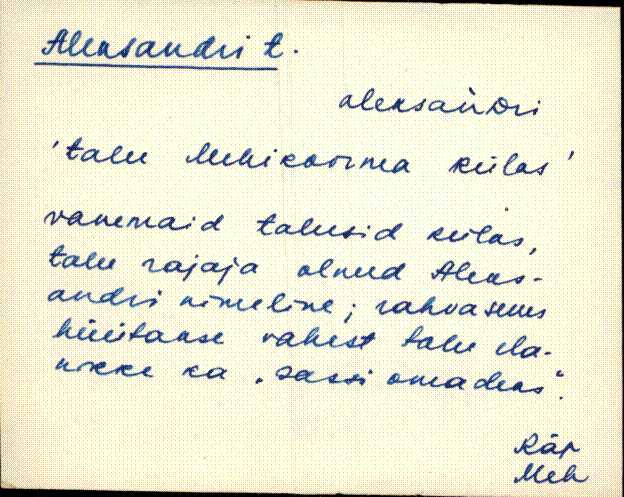 Aleksandri t.
aleksàǹdri
'talu Mehikoorma külas'
vanemaid talusid külas,
talu rajaja olnud Aleks-
andri nimeline; rahvasuus
hüütakse vahest talu ela-
nikke ka „Sassi omadeks".
Räp
Meh